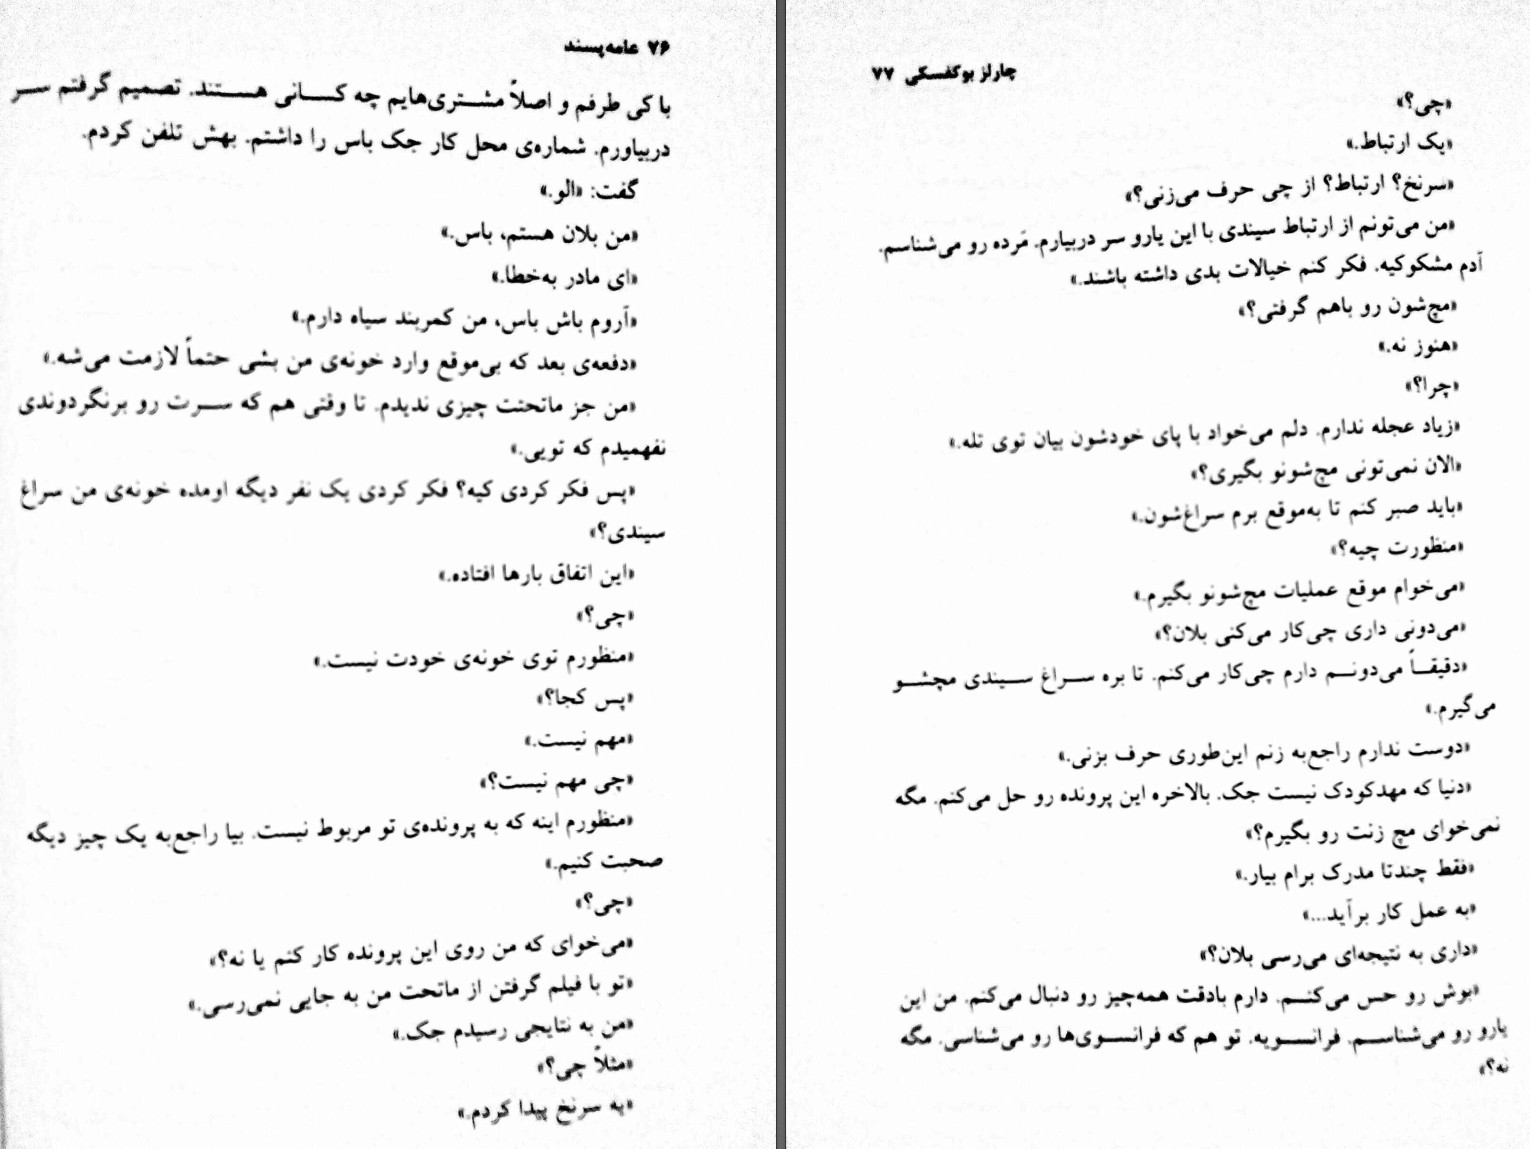 ۷۶ عامه‌پسند
با کی طرفم و اصلاً مشتری‌هایم چه کسانی هستند. تصمیم گرفتم سر
دربیاورم. شماره‌ی محل کار جک باس را داشتم. بهش تلفن کردم.
گفت: «الو.»
«من بلان هستم، باس.»
«ای مادر به‌خطا.»
«آروم باش باس، من کمربند سیاه دارم.»
«دفعه‌ی بعد که بی‌موقع وارد خونه‌ی من بشی حتماً لازمت می‌شه.»
«من جز ماتحتت چیزی ندیدم. تا وقتی هم که سرت رو برنگردوندی
نفهمیدم که تویی.»
«پس فکر کردی کیه؟ فکر کردی یک نفر دیگه اومده خونه‌ی من سراغ
سیندی؟»
«این اتفاق بارها افتاده.»
«چی؟»
«منظورم توی خونه‌ی خودت نیست.»
«پس کجا؟»
«مهم نیست.»
«چی مهم نیست؟»
«منظورم اینه که به پرونده‌ی تو مربوط نیست. بیا راجع‌به یک چیز دیگه
صحبت کنیم.»
«چی؟»
«می‌خوای که من روی این پرونده کار کنم یا نه؟»
«تو با فیلم گرفتن از ماتحت من به جایی نمی‌رسی.»
«من به نتایجی رسیدم جک.»
«مثلاً چی؟»
«یه سرنخ پیدا کردم.»
چارلز بوکفسکی ۷۷
«چی؟»
«یک ارتباط.»
«سرنخ؟ ارتباط؟ از چی حرف می‌زنی؟»
«من می‌تونم از ارتباط سیندی با این یارو سر دربیارم. مَرده رو می‌شناسم.
آدم مشکوکیه. فکر کنم خیالات بدی داشته باشند.»
«مچ‌شون رو باهم گرفتی؟»
«هنوز نه.»
«چرا؟»
«زیاد عجله ندارم. دلم می‌خواد با پای خودشون بیان توی تله.»
«الان نمی‌تونی مچ‌شونو بگیری؟»
«باید صبر کنم تا به‌موقع برم سراغ‌شون.»
«منظورت چیه؟»
«می‌خوام موقع عملیات مچ‌شونو بگیرم.»
«می‌دونی داری چی‌کار می‌کنی بلان؟»
«دقیقاً می‌دونم دارم چی‌کار می‌کنم. تا بره سراغ سیندی مچشو
می‌گیرم.»
«دوست ندارم راجع‌به زنم این‌طوری حرف بزنی.»
«دنیا که مهدکودک نیست جک. بالاخره این پرونده رو حل می‌کنم. مگه
نمی‌خوای مچ زنت رو بگیرم؟»
«فقط چندتا مدرک برام بیار.»
«به عمل کار برآید...»
«داری به نتیجه‌ای می‌رسی بلان؟»
«بوش رو حس می‌کنم. دارم بادقت همه‌چیز رو دنبال می‌کنم. من این
یارو رو می‌شناسم. فرانسویه. تو هم که فرانسوی‌ها رو می‌شناسی. مگه
نه؟»